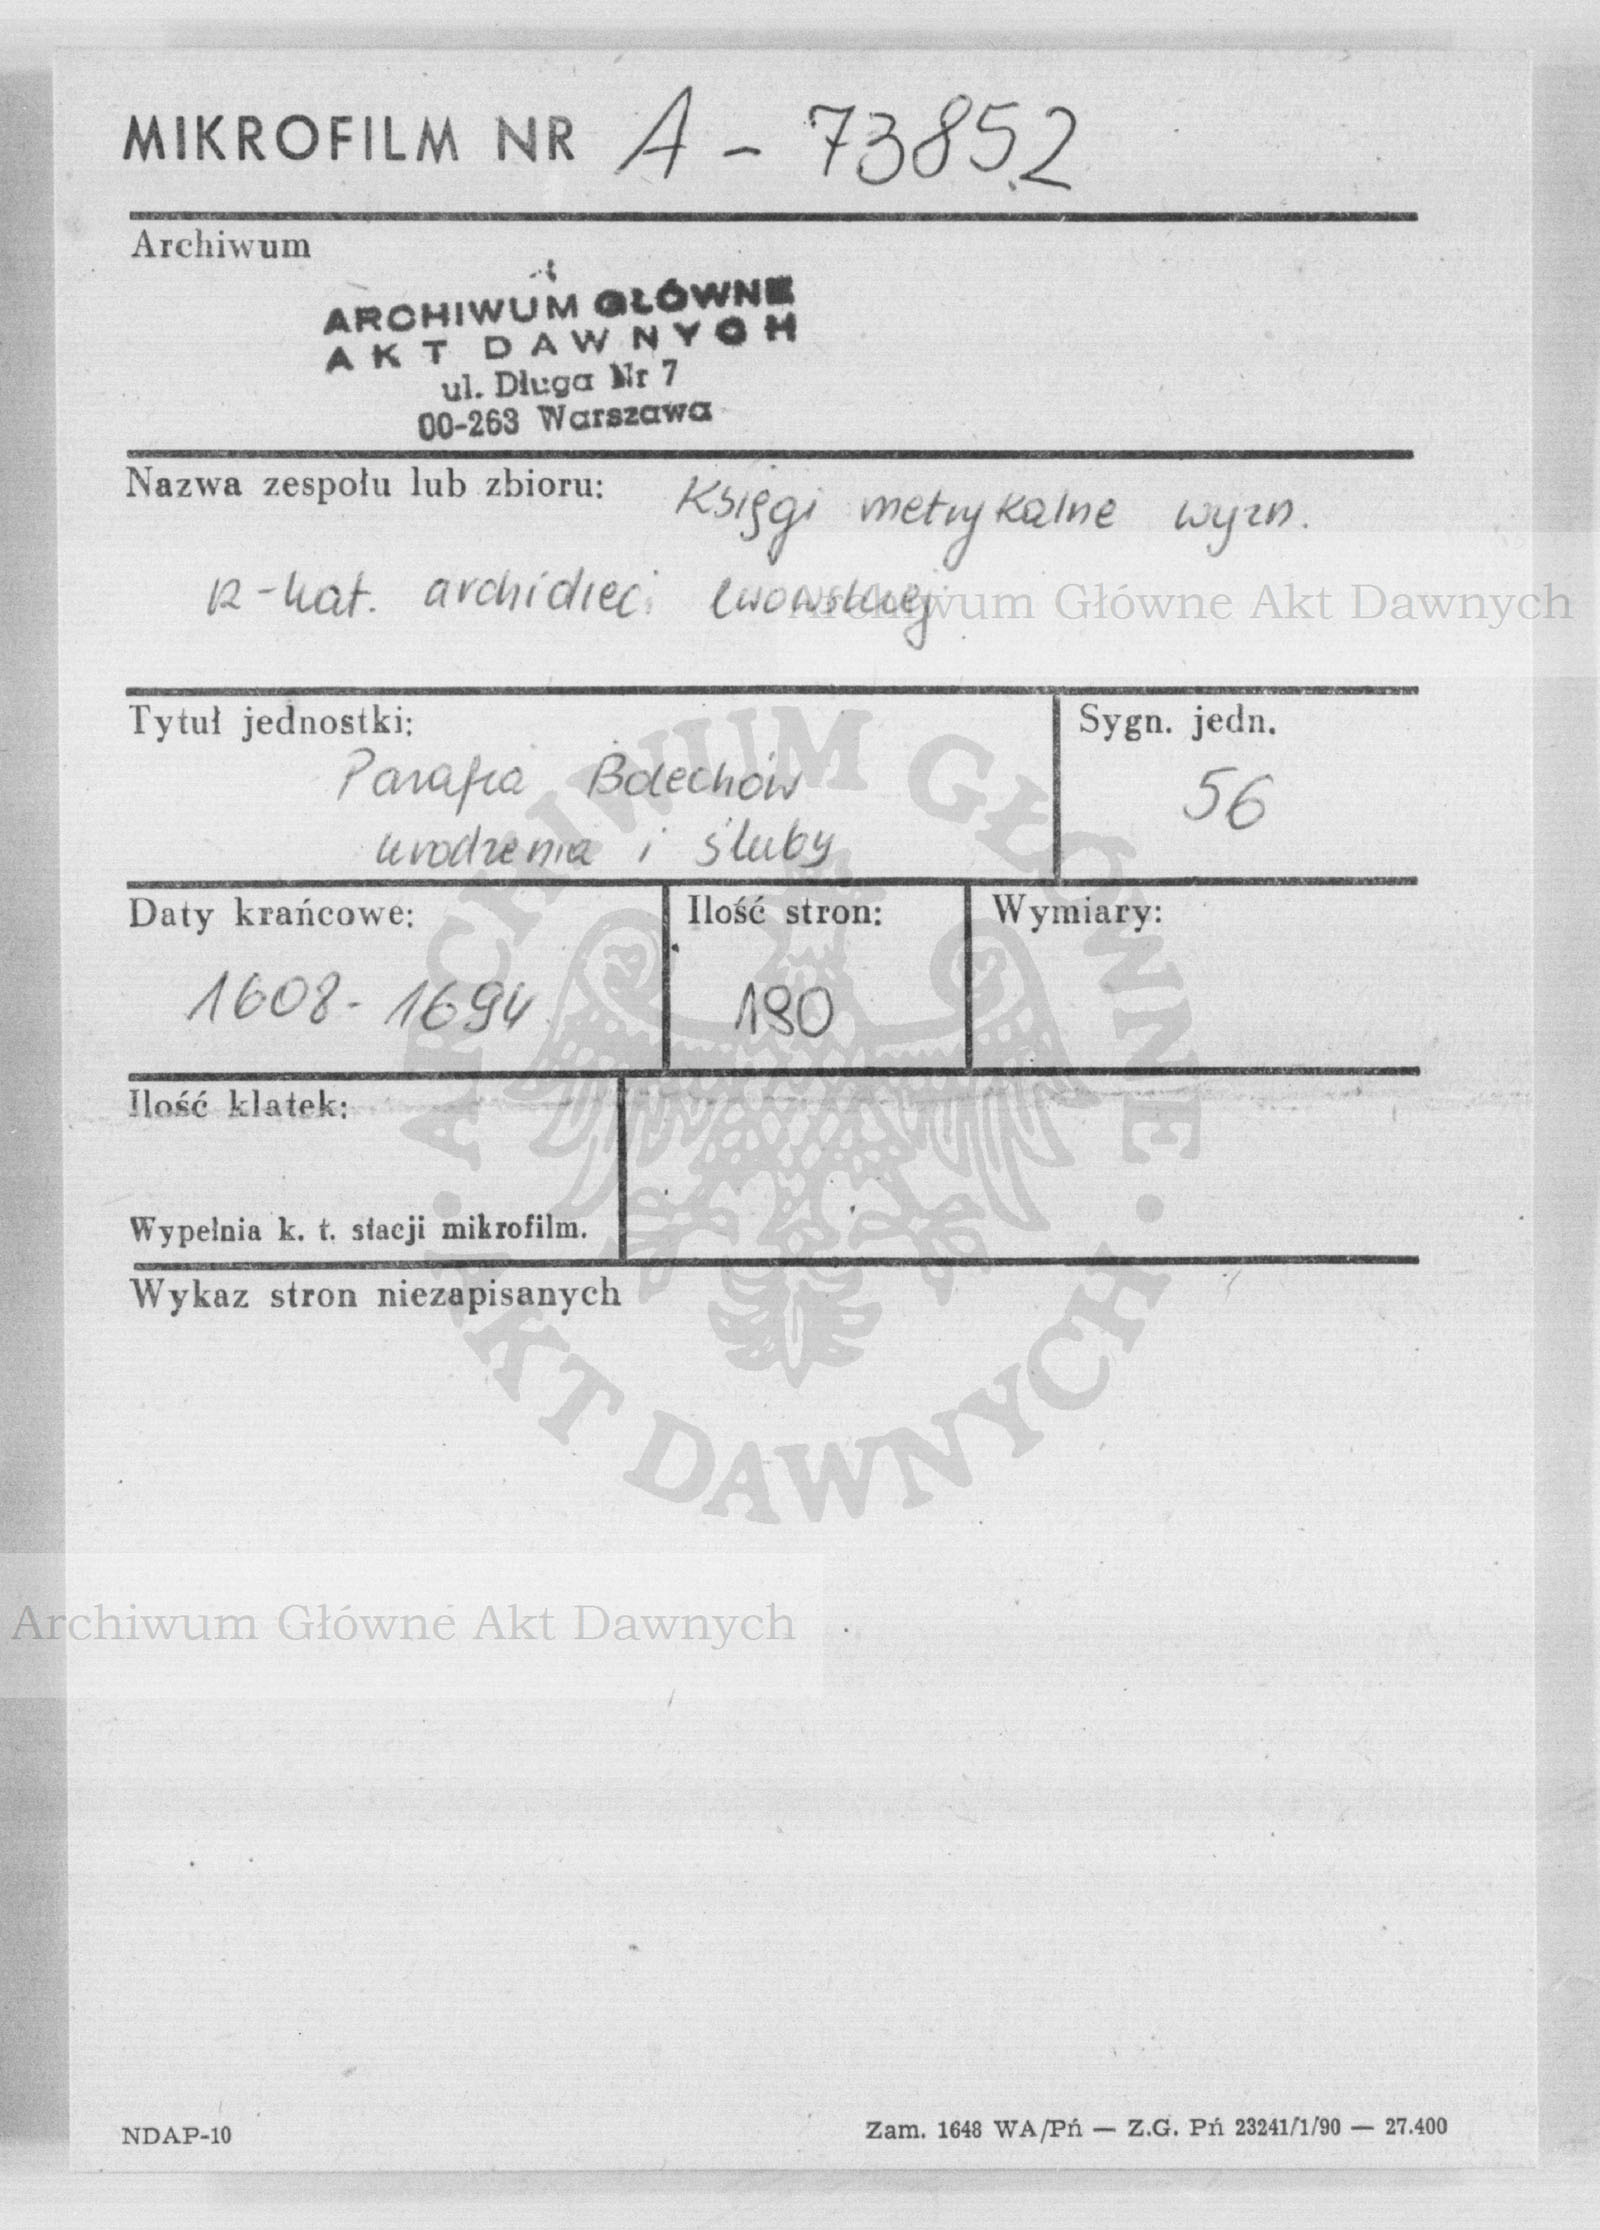 MIKROFILM NR A - 73852
Archiwum
ARCHIWUM GŁÓWNE
AKT DAWNYCH
ul. Długa Nr 7
00-263 Warszawa
Nazwa zespołu lub zbioru: Księgi metrykalne wyzn.
r-kat. archidiec. lwowskiej
Archiwum Główne Akt Dawnych
Tytuł jednostki:
Sygn. jedn.
Parafia Bolechów
56
urodzenia i śluby
Daty krańcowe:
Ilość stron:
Wymiary:
1608 - 1694
190
Ilość klatek:
Wypełnia k. t. stacji mikrofilm.
Wykaz stron niezapisanych
ARCHIWUM GŁÓWNE AKT DAWNYCH
Archiwum Główne Akt Dawnych
NDAP-10
Zam. 1648 WA/Pń — Z.G. Pń 23241/1/90 — 27.400